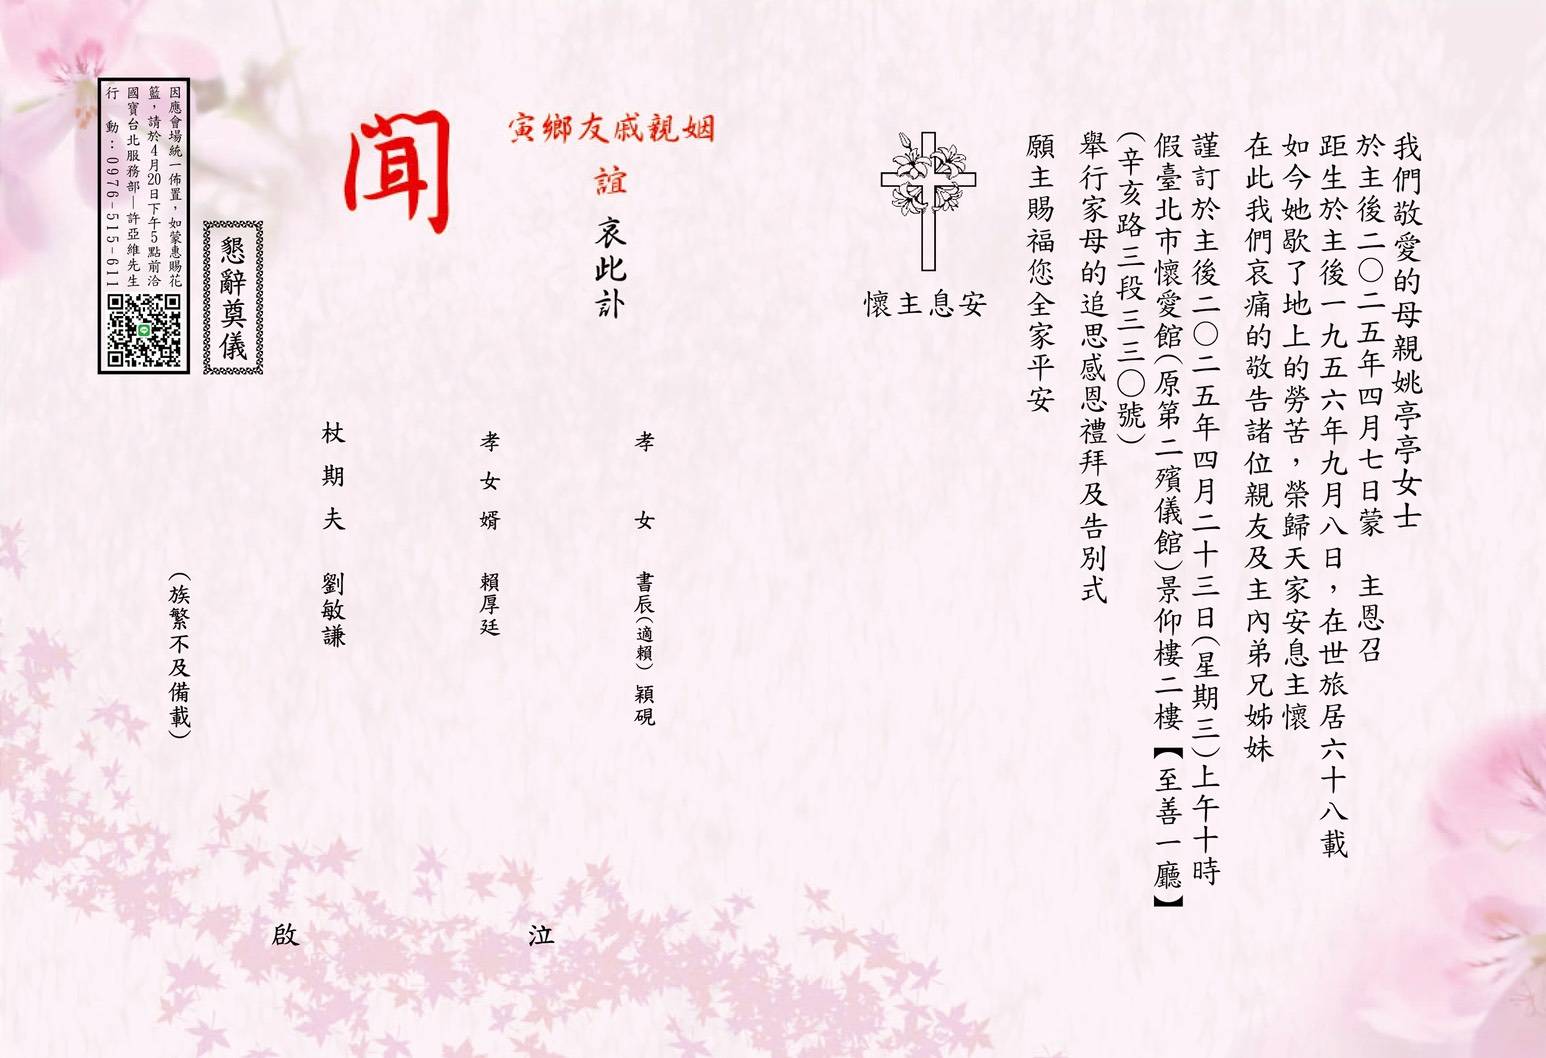 我們敬愛的母親姚亭亭女士
於主後二〇二五年四月七日蒙　主恩召
距生於主後一九五六年九月八日，在世旅居六十八載
如今她歇了地上的勞苦，榮歸天家安息主懷
在此我們哀痛的敬告諸位親友及主內弟兄姊妹
謹訂於主後二〇二五年四月二十三日(星期三)上午十時
假臺北市懷愛館(原第二殯儀館)景仰樓二樓【至善一廳】
(辛亥路三段三三〇號)
舉行家母的追思感恩禮拜及告別式
願主賜福您全家平安
懷主息安
寅鄉友戚親姻
誼
哀此訃
聞
孝女　書辰(適賴)　穎硯
孝女婿　賴厚廷
杖期夫　劉敏謙
(族繁不及備載)
泣
啟
懇辭奠儀
因應會場統一佈置，如蒙惠賜花
籃，請於4月20日下午5點前洽
國寶台北服務部—許亞維先生
行　動：0976-515-611